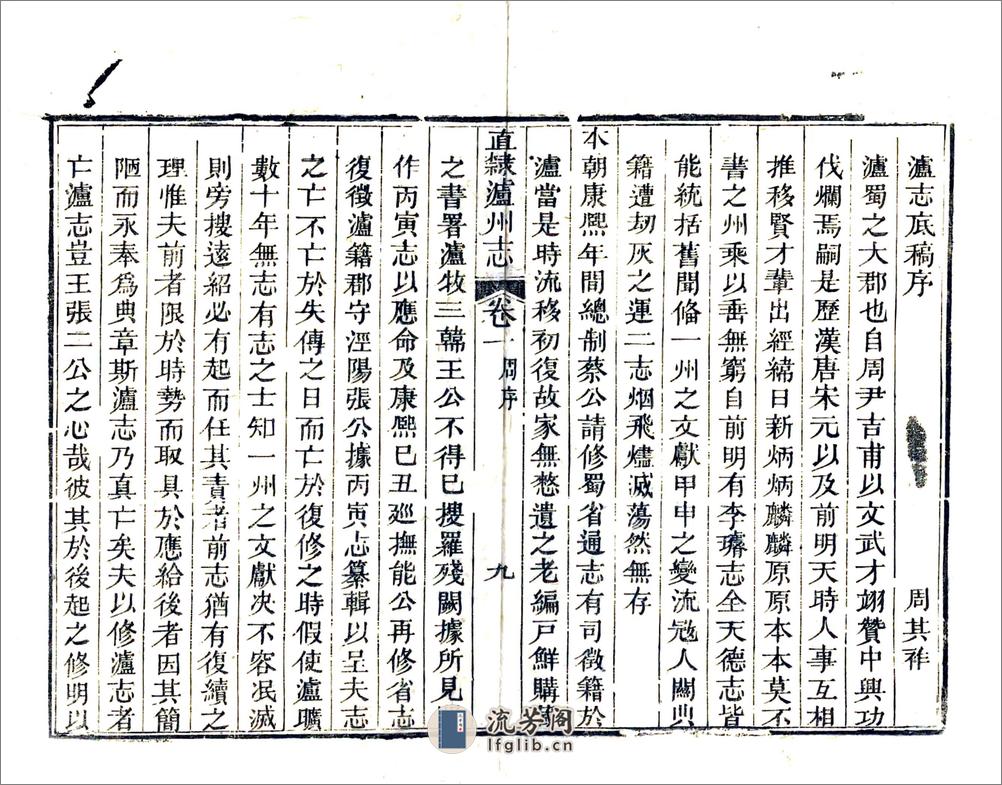 瀘志底稿序 周其祚
瀘蜀之大郡也自周尹吉甫以文武才翊贊中興功
伐爛焉嗣是歷漢唐宋元以及前明天時人事互相
推移賢才輩出經緯日新炳炳麟麟原原本本莫不
書之州乘以垂無窮自前明有李璿志全天德志皆
能統括舊聞俻一州之文獻甲申之變流冦入關典
籍遭刧灰之運二志烟飛燼滅蕩然無存
本朝康熙年間總制蔡公請修蜀省通志有司徵籍於
瀘當是時流移初復故家無憗遺之老編戸鮮購
直隸瀘州志 卷一 周序 九
之書署瀘牧三韓王公不得已搜羅殘闕據所見
作丙寅志以應命及康熙己丑廵撫能公再修省志
復徵瀘籍郡守涇陽張公據丙寅志纂輯以呈夫志
之亡不亡於失傳之日而亡於復修之時假使瀘曠
數十年無志有志之士知一州之文獻决不容冺滅
則旁搜遠紹必有起而任其責者前志猶有復續之
理惟夫前者限於時勢而取具於應給後者因其簡
陋而永奉爲典章斯瀘志乃真亡矣夫以修瀘志者
亡瀘志豈王張二公之心哉彼其於後起之修明以
流芳阁
lfglib.cn